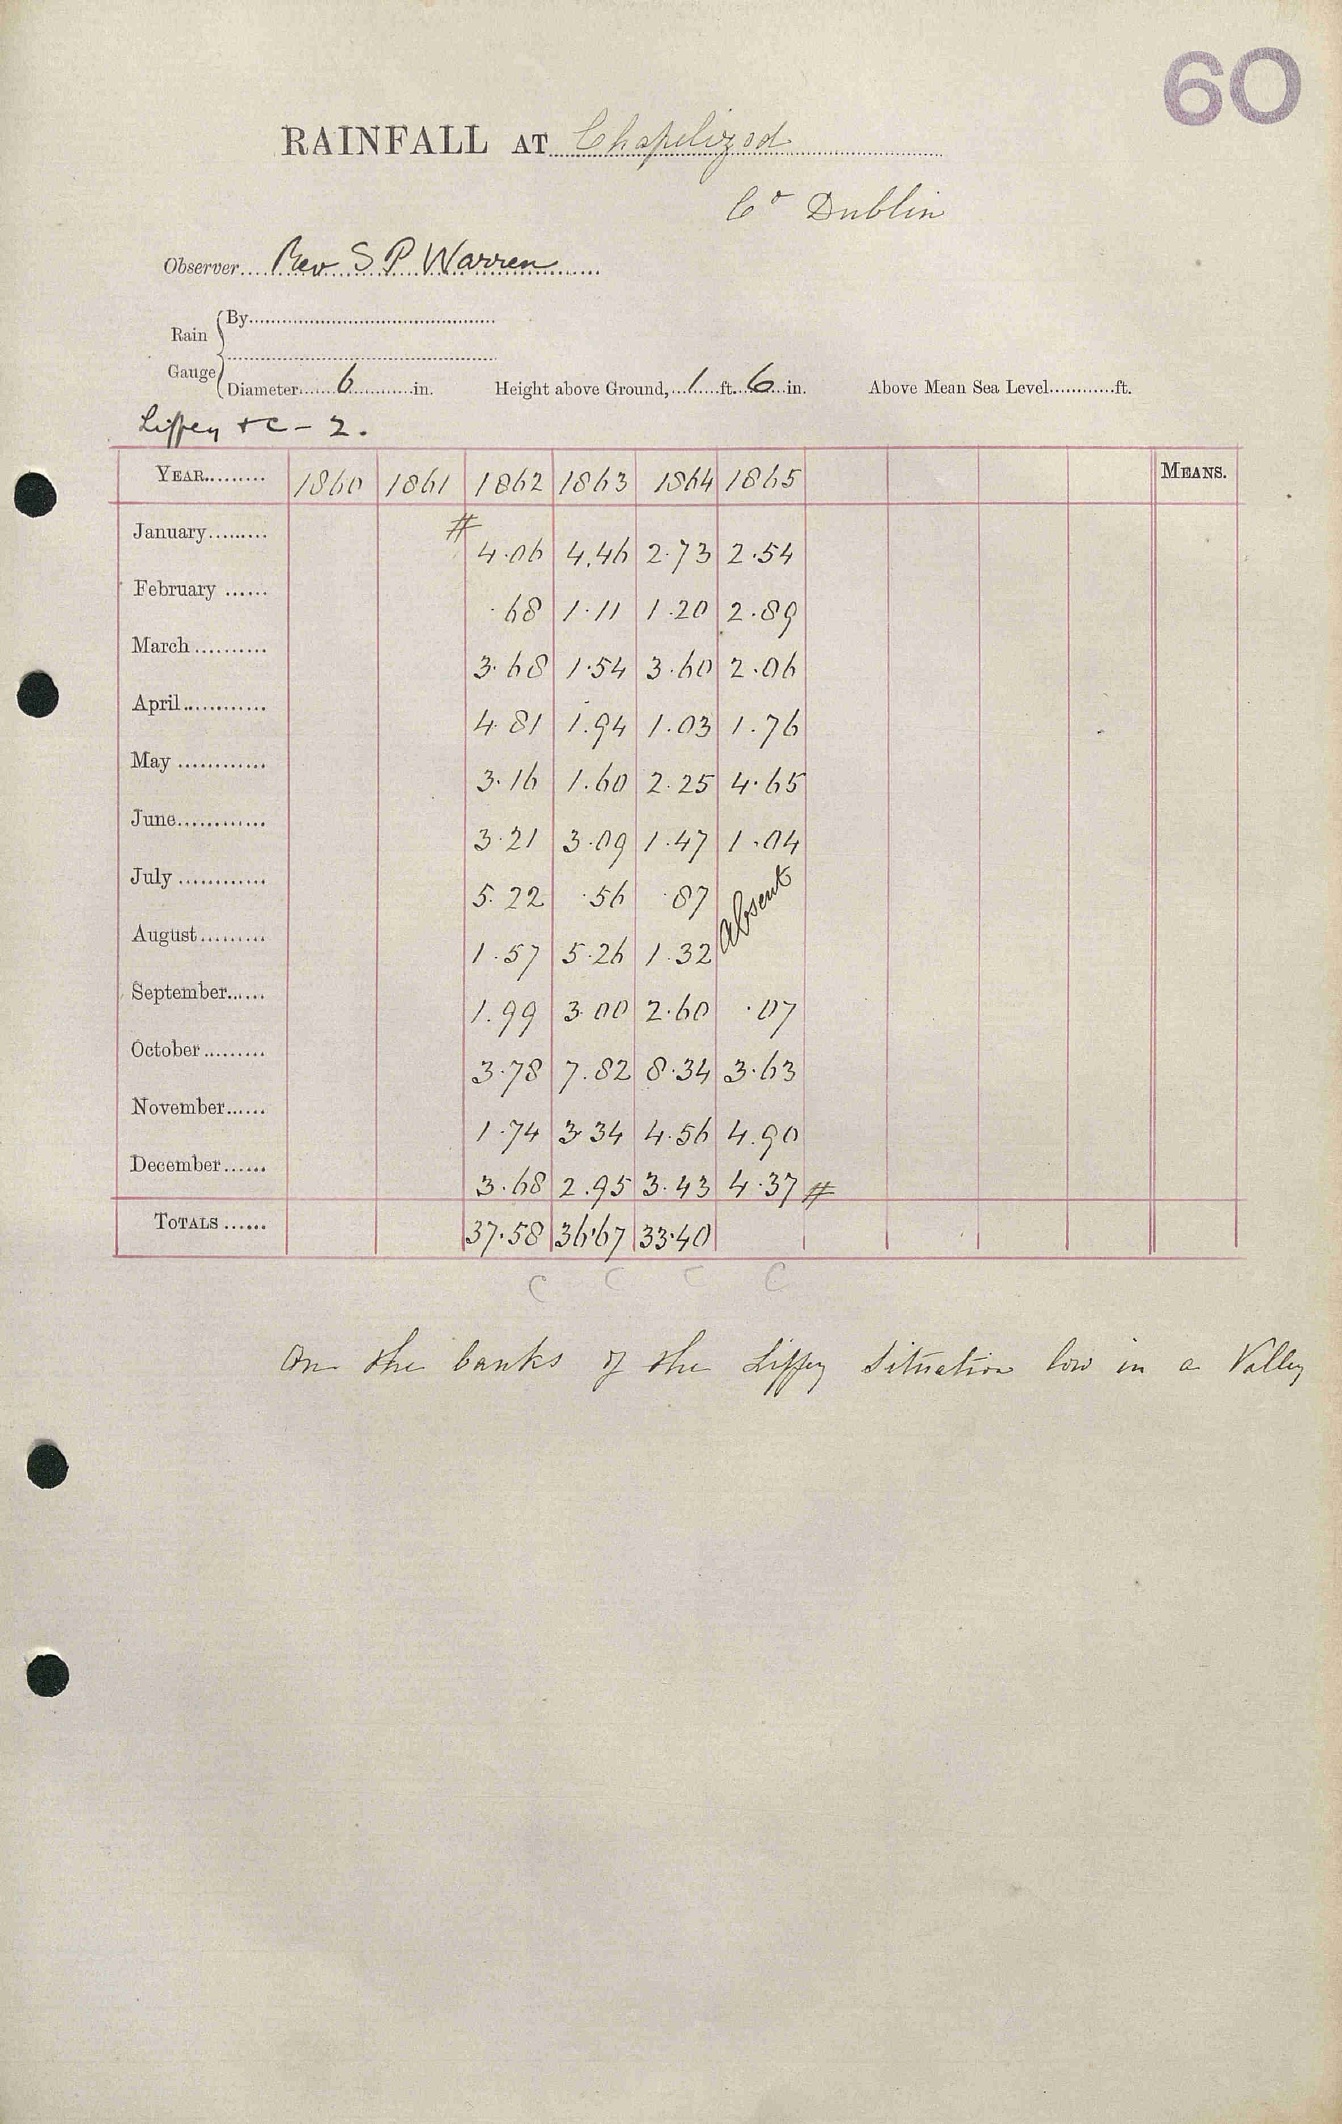 60
RAINFALL AT Chapelizod
Co Dublin
Observer Rev S P Warren
Rain Gauge
By
Diameter 6 in. Height above Ground, 1 ft. 6 in. Above Mean Sea Level ft.
Liffey &c - 2.
YEAR 1860 1861 1862 1863 1864 1865 MEANS.
January # 4.06 4.46 2.73 2.54
February .68 1.11 1.20 2.89
March 3.68 1.54 3.60 2.06
April 4.81 1.94 1.03 1.76
May 3.16 1.60 2.25 4.65
June 3.21 3.09 1.47 1.04
July 5.22 .56 .87 Absent
August 1.57 5.26 1.32
September 1.99 3.00 2.60 .07
October 3.78 7.82 8.34 3.63
November 1.74 3.34 4.56 4.90
December 3.68 2.95 3.43 4.37 #
TOTALS 37.58 36.67 33.40
C C C C
On the banks of the Liffey Situation low in a Valley